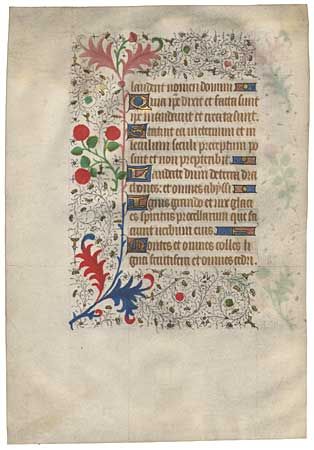 laudent nomen domini
Quia ip̄e dixit et facta sunt
ip̄e mandauit et creata sunt.
Statuit ea in eternum et in
seculum seculi preceptum po
suit et non preteribit
Laudate dn̄m de terra dra
chones: et omnes abyssi
Ignis grando et nix glaci
es spiritus procellarum que fa
ciunt uerbum eius
Montes et omnes colles li
gna fructifera et omnes cedri.